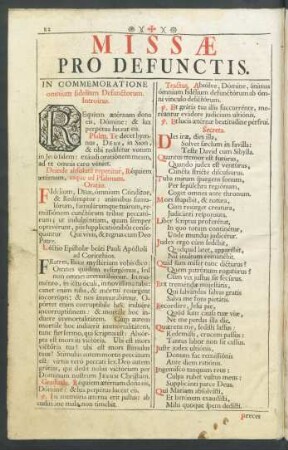 MISSÆ
PRO DEFUNCTIS.
IN COMMEMORATIONE
omnium fidelium Defunctorum.
Introitus.
Requiem æternam dona
eis, Dómine: & lux
perpétua lúceat eis.
Psalm. Te decet hymnus,
Deus, in Sion,
& tibi reddétur votum
in Jerúsalem: exáudi oratiónem meam,
ad te omnis caro véniet.
Oratio.
Fidélium, Deus, ómnium Cónditor,
& Redémptor: animábus famulórum,
famularúmque tuárum, remissiónem
cunctórum tríbue peccatórum:
ut indulgéntiam, quam semper
optavérunt, piis supplicatiónibus consequántur.
Qui vivis, & regnas cum Deo
Patre.
Léctio Epístolæ beáti Pauli Apóstoli
ad Corínthios.
Fratres. Ecce mystérium vobis dico:
Omnes quidem resurgémus, sed
non omnes immutábimur. In moménto,
in ictu óculi, in novíssima tuba:
canet enim tuba, & mórtui resurgent
incorrúpti: & nos immutábimur.
Opórtet enim corruptíbile hoc indúere
incorruptiónem: & mortále hoc indúere
immortalitátem. Cum autem
mortále hoc indúerit immortalitátem,
tunc fiet sermo, qui scriptus est: Absórpta
est mors in victória. Ubi est mors
victória tua? ubi est mors stímulus
tuus? Stímulus autem mortis peccátum
est: virtus vero peccáti lex. Deo autem
grátias, qui dedit nobis victóriam per
Dóminum nostrum Jesum Christum.
Graduale. Réquiem ætérnam dona eis,
Dómine: & lux perpétua lúceat eis.
℣. In memória ætérna erit justus: ab
auditióne mala non timébit.
Tractus. Absólve, Dómine, ánimas
ómnium fidélium defunctórum ab omni
vínculo delictórum.
℣. Et grátia tua illis succurrénte, mereántur
evádere judícium ultiónis.
℣. Et lucis ætérnæ beatitúdine pérfrui.
Dies iræ, dies illa,
Solvet sæclum in favílla:
Teste David cum Sibýlla.
Quantus tremor est futúrus,
Quando judex est ventúrus,
Cuncta stricte discussúrus.
Tuba mirum spargens sonum,
Per sepúlchra regiónum,
Coget omnes ante thronum.
Mors stupébit, & natúra,
Cum resúrget creatúra,
Judicánti responsúra.
Liber scriptus proferétur,
In quo totum continétur,
Unde mundus judicétur.
Judex ergo cum sedébit,
Quidquid latet, apparébit,
Nil inúltum remanébit.
Quid sum miser tunc dictúrus?
Quem patrónum rogatúrus?
Cum vix justus sit secúrus.
Rex treméndæ majestátis,
Qui salvándos salvas gratis
Salva me fons pietátis.
Recordáre, Jesu pie,
Quod sum causa tuæ viæ,
Ne me perdas illa die.
Quærens me, sedísti lassus:
Redemísti, crucem passus:
Tantus labor non sit cassus.
Juste judex ultiónis,
Donum fac remissiónis
Ante diem ratiónis.
Ingemísco tamquam reus:
Culpa rubet vultus meus:
Supplicánti parce Deus.
Qui Maríam absolvísti,
Et latrónem exaudísti,
Mihi quoque spem dedísti.
preces